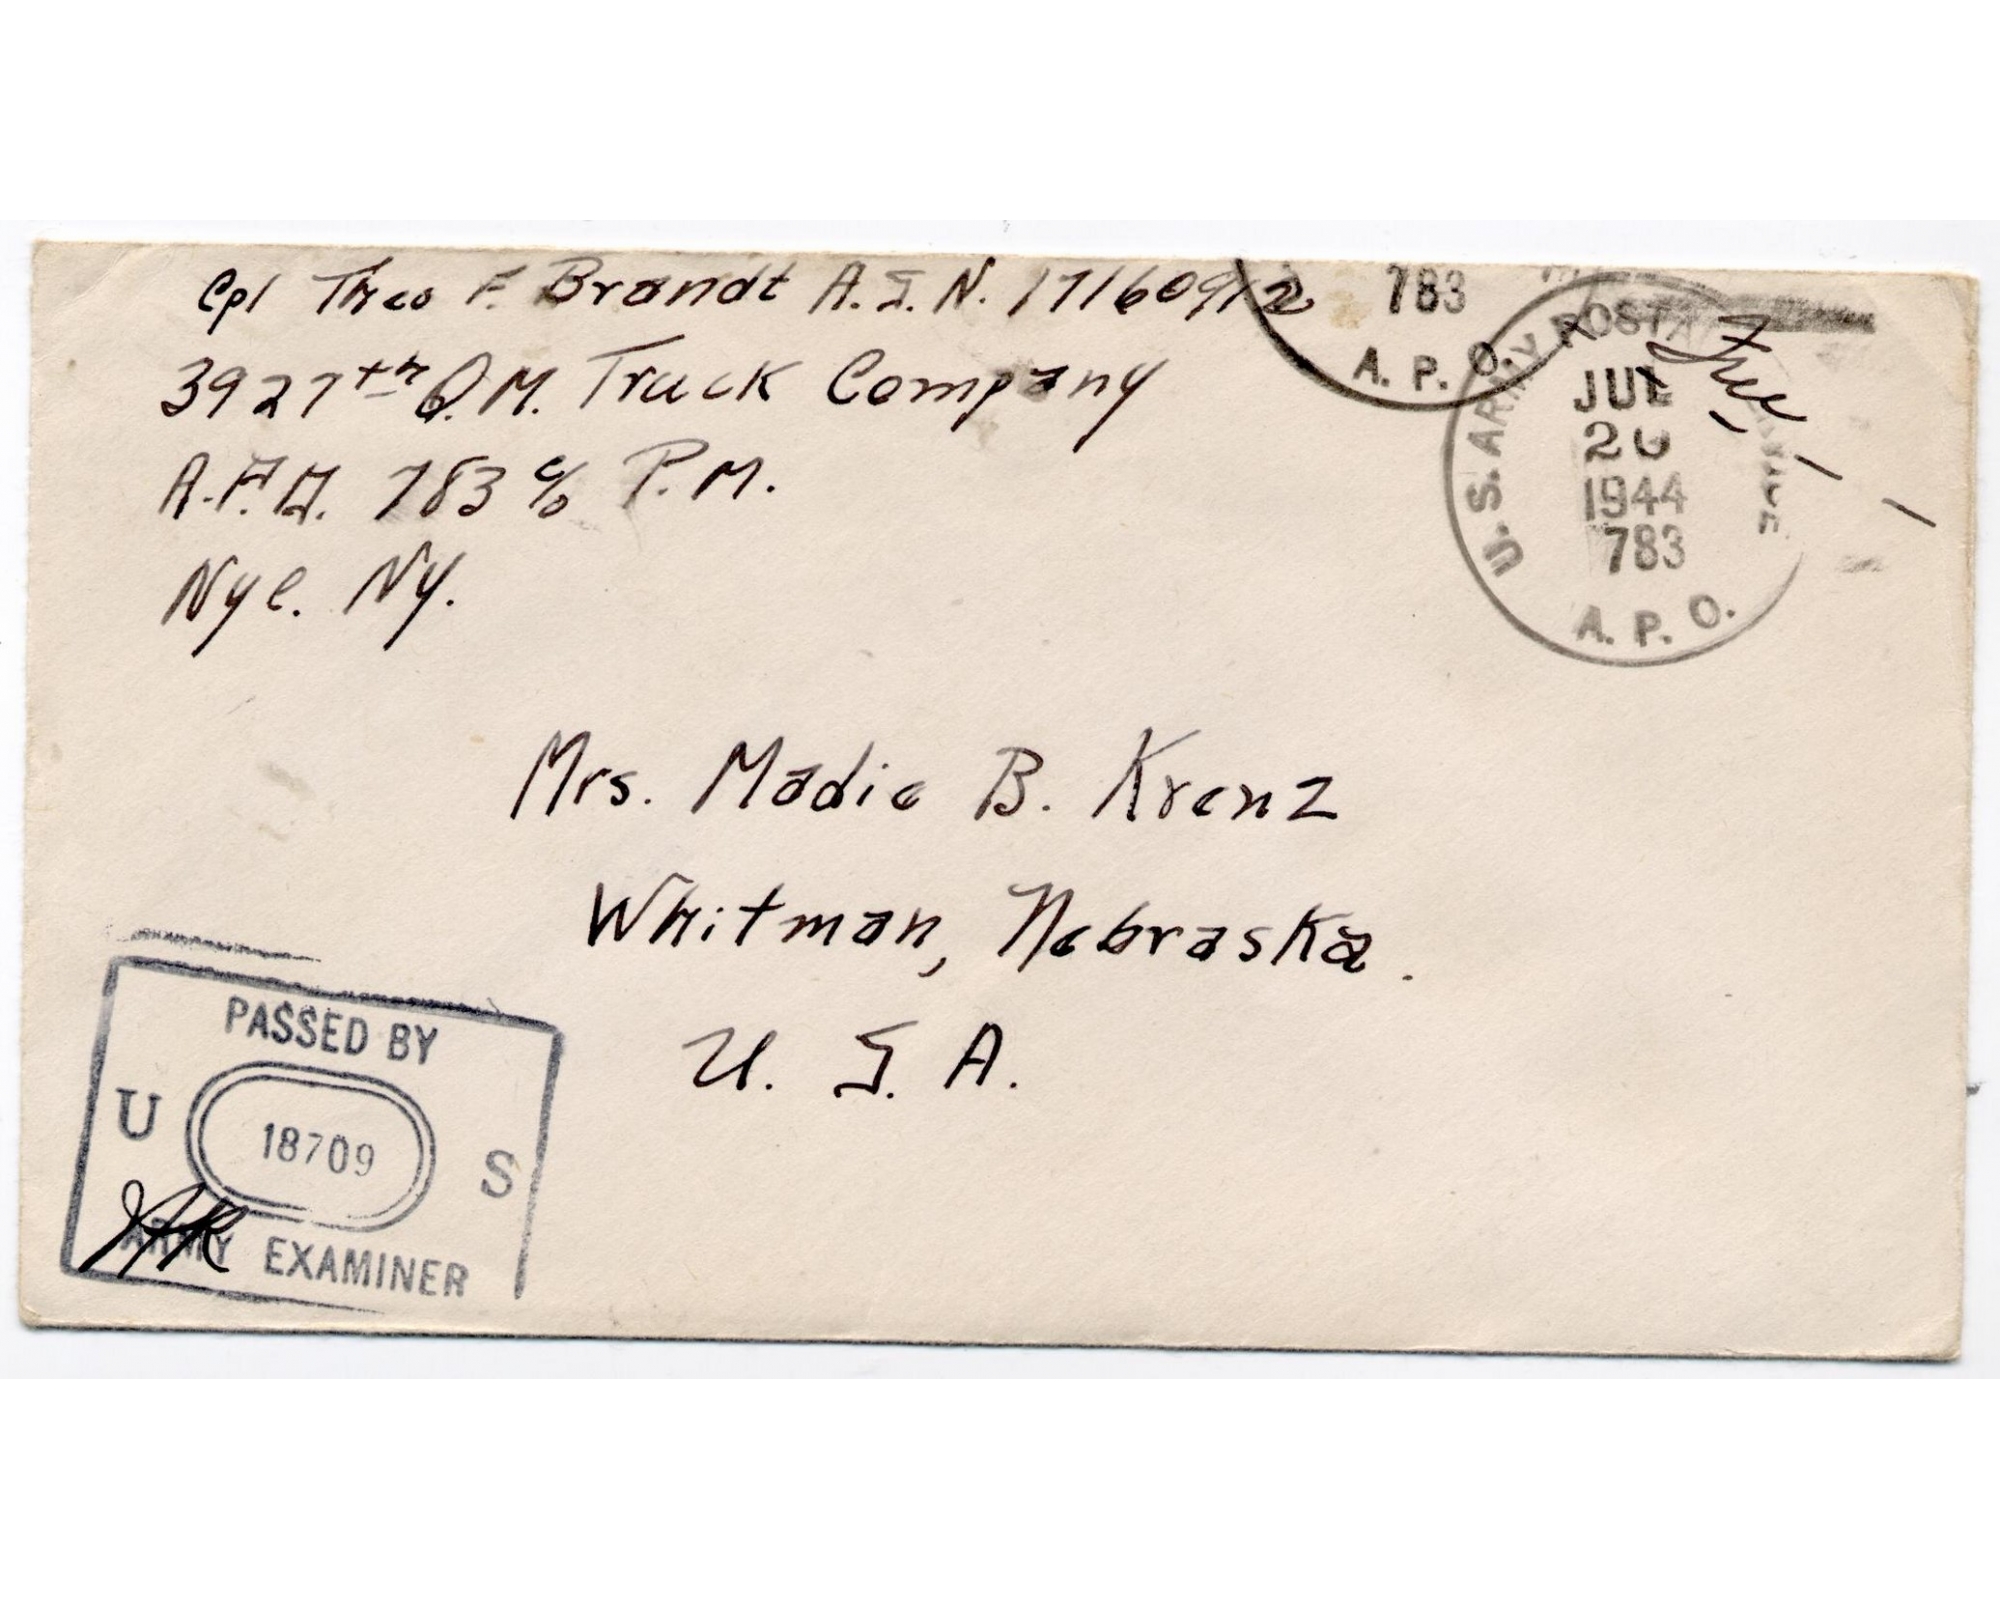 Cpl Theo F. Brandt A.S.N. 17160912
3927th Q.M. Truck Company
A.P.O. 783 c/o P.M.
Nyc. Ny.
783
A. P. O.
U.S. ARMY POSTAL
JUL
1944
783
A. P. O.
Free
Mrs. Madie B. Krenz
Whitman, Nebraska.
U. S. A.
PASSED BY
U S
18709
ARMY EXAMINER